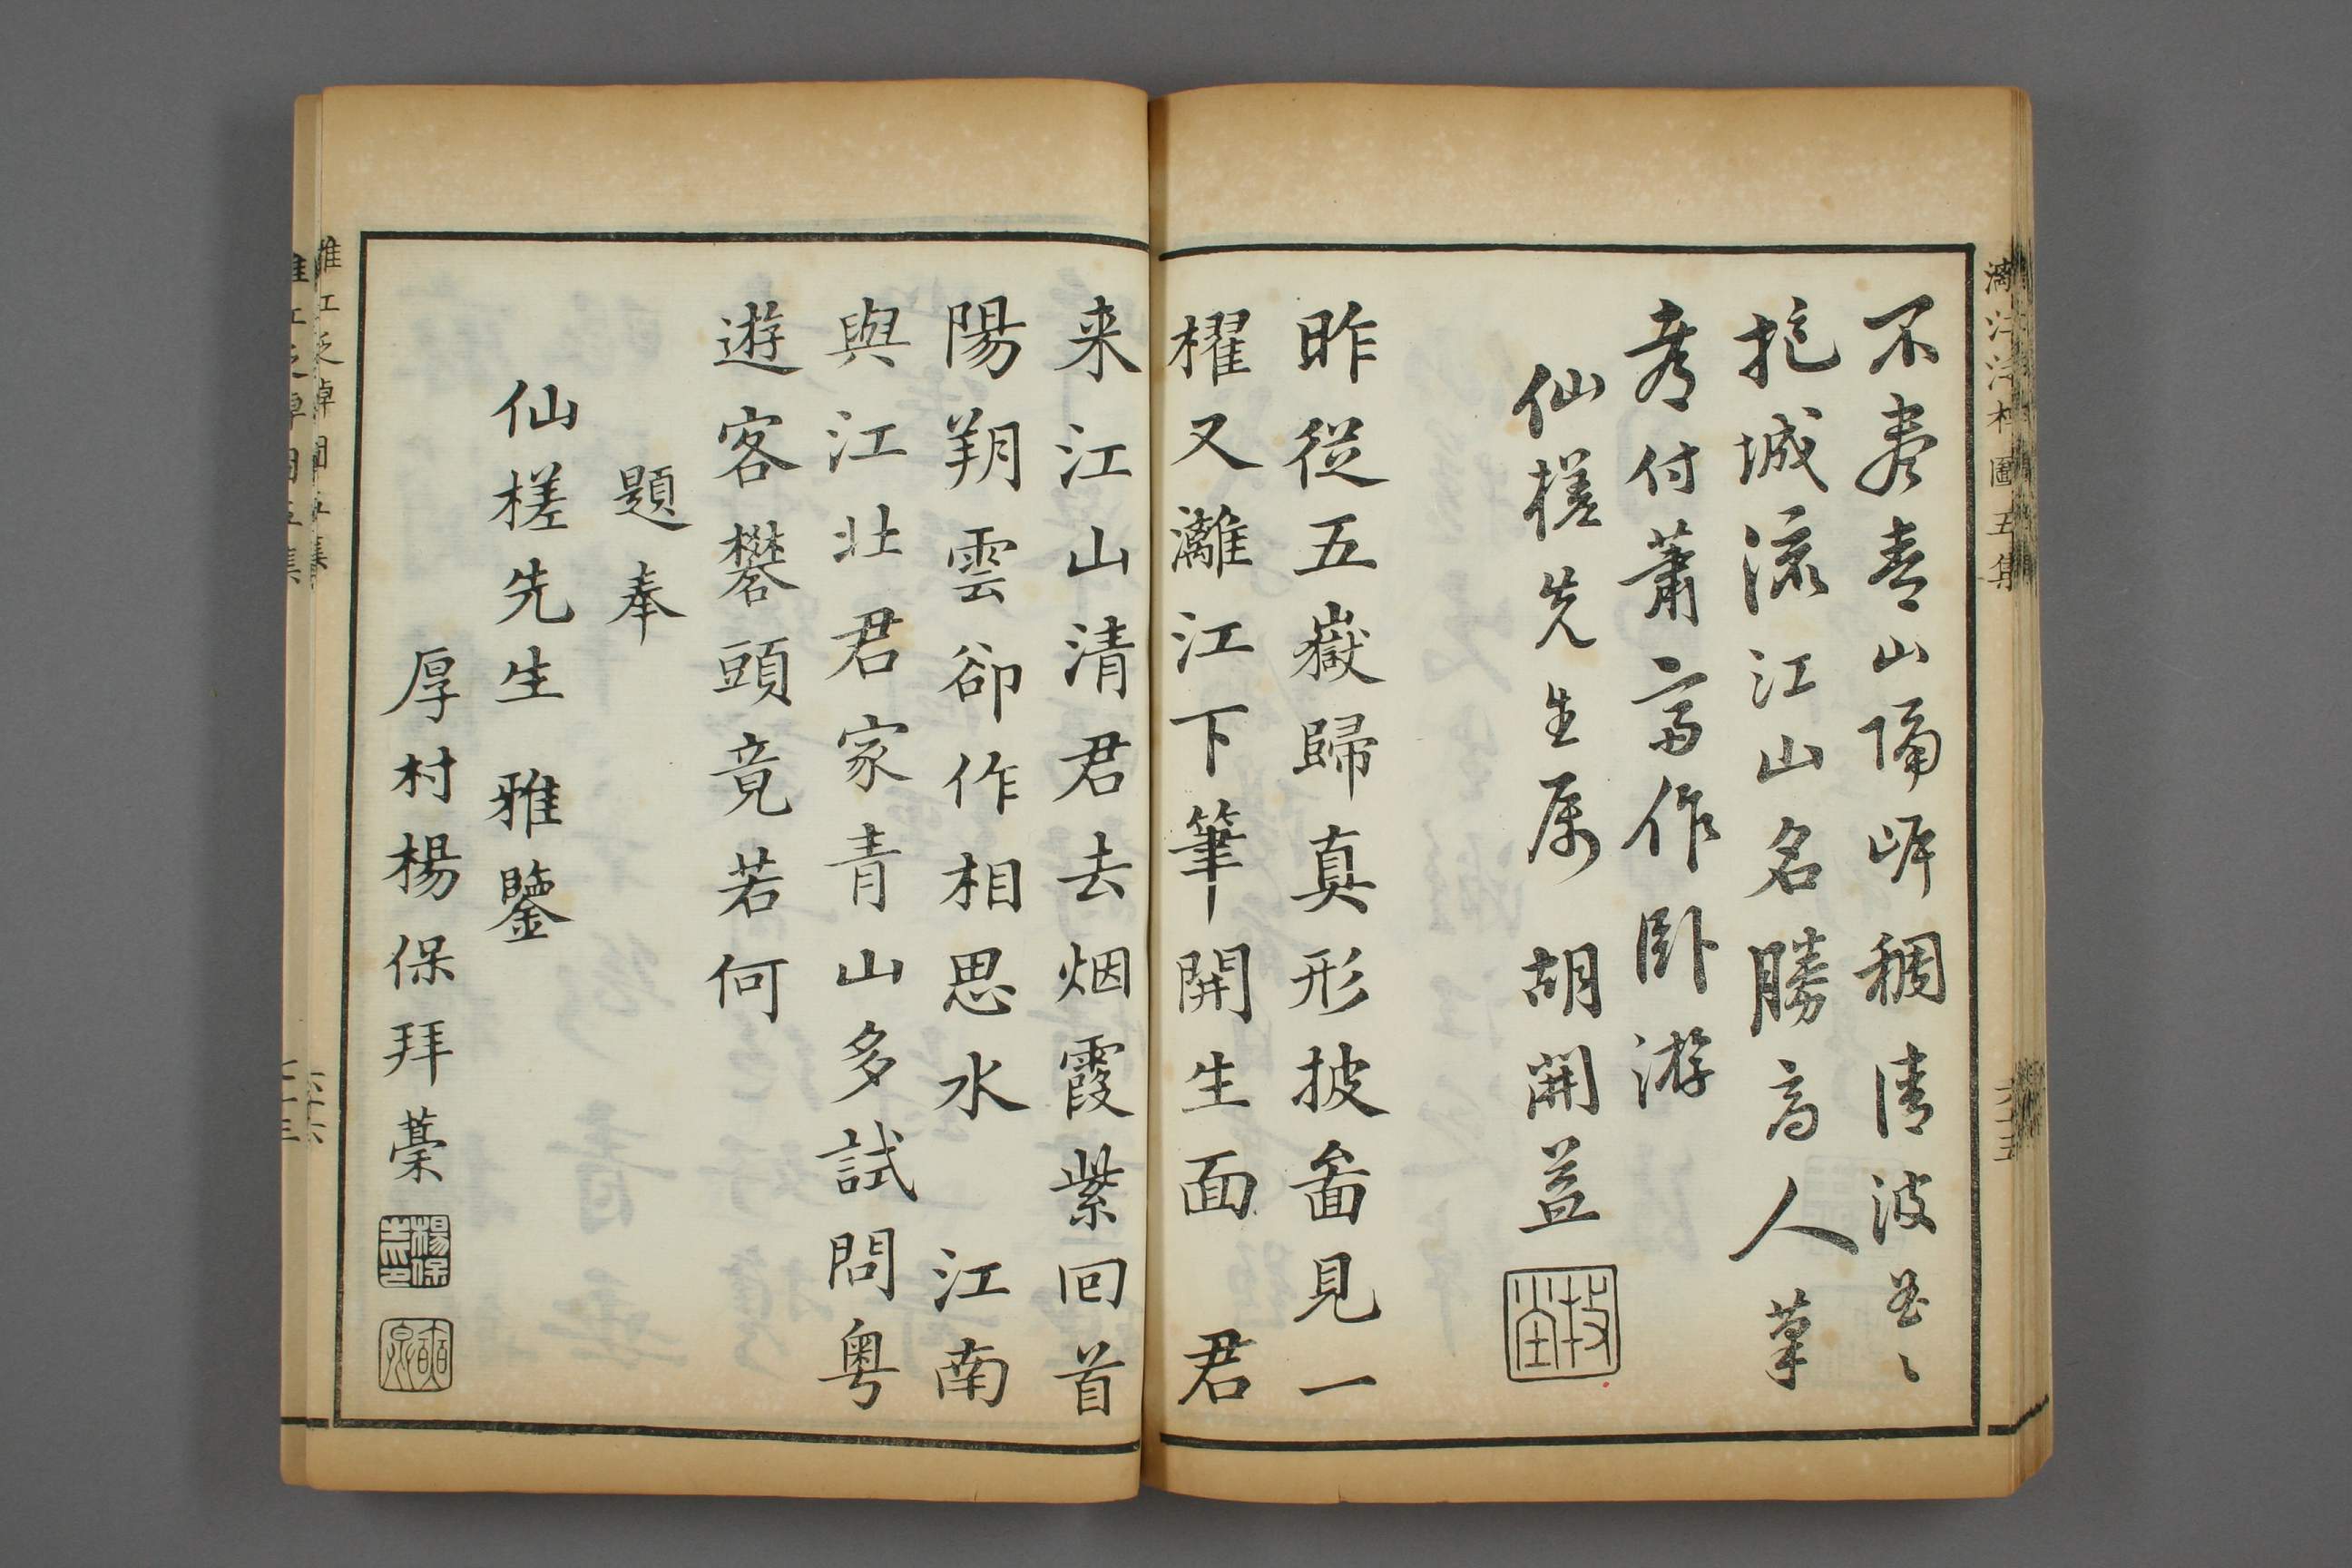 不盡青山隔岸稠清波㽞〻
抱城流江山名勝高人筆
為付蕭齋作臥游
仙槎先生属 胡開益
昨從五嶽歸真形披畫見一
櫂又灕江下筆開生面 君
来江山清君去烟霞紫回首
陽朔雲卻作相思水 江南
與江北君家青山多試問粤
遊客礬頭竟若何
題奉
仙槎先生 雅鑒
厚村楊保拜藁